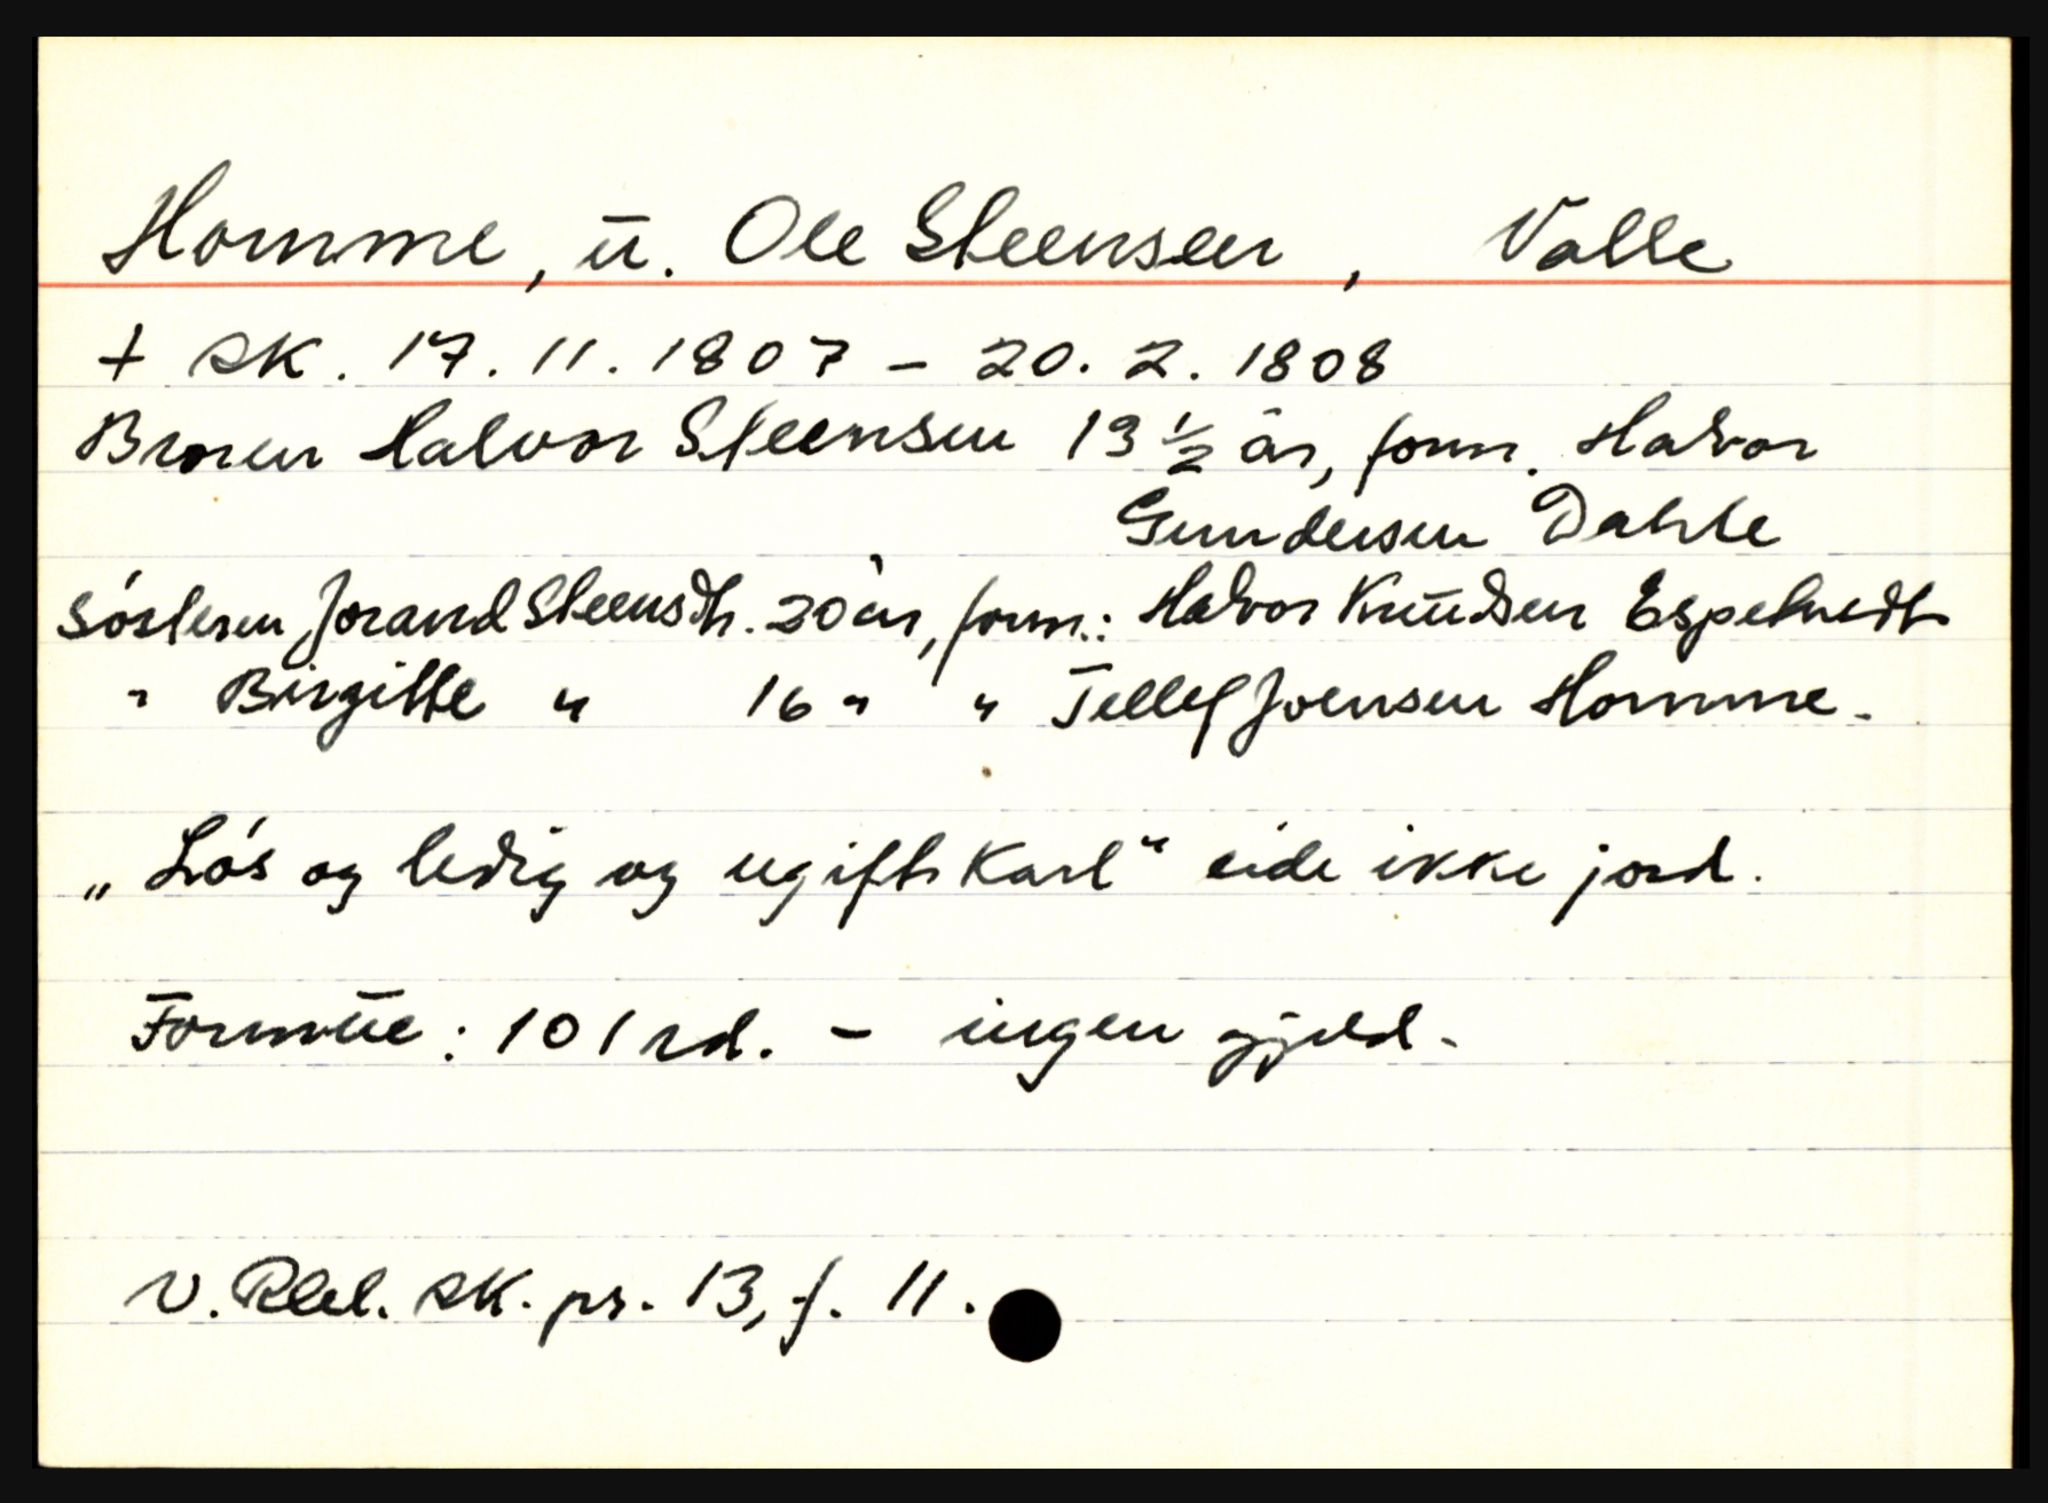 Homme, u. Ole Steensen, Valle
+ sk. 17. 11. 1807 - 20. 2. 1808
Broren Halvor Steensen 13 1/2 år, form. Halvor
Gundersen Dahle
Søsteren Jorand Steensdtr. 20 år, form.: Halvor Knudsen Espetvedt
" Birgitte " 16 " " Tellef Joensen Homme.
„Løs og ledig og ugift Karl“ eide ikke jord.
Formue: 101 rd. - ingen gjeld.
V. Rbl. sk. pr. 13, f. 11.